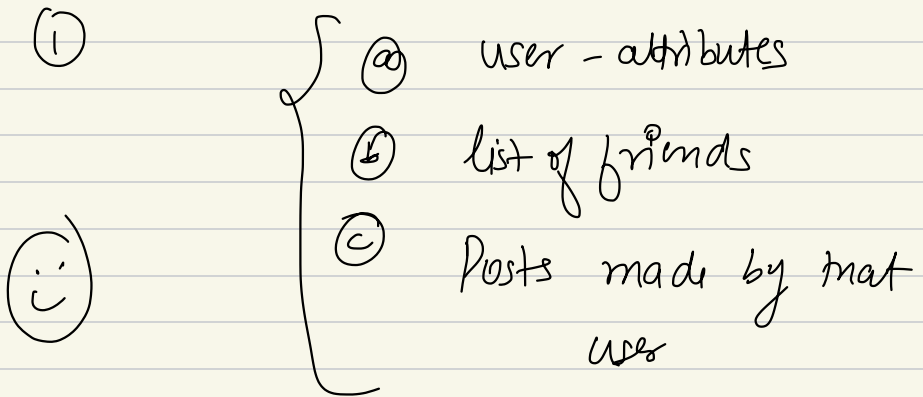 1
a user - attributes
b list of friends
c Posts made by that
user